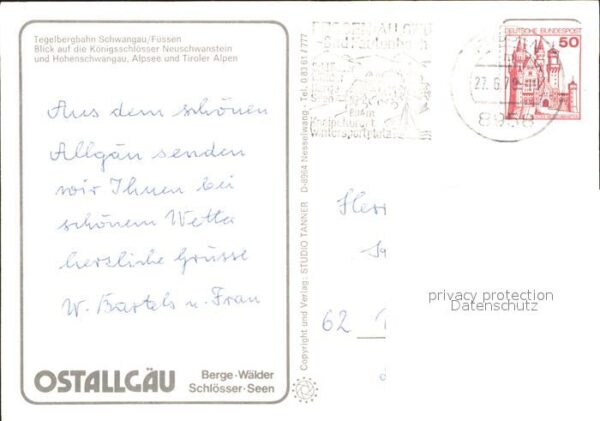 Tegelbergbahn Schwangau/Füssen
Blick auf die Königsschlösser Neuschwanstein
und Hohenschwangau, Alpsee und Tiroler Alpen
Aus dem schönen
Allgäu senden
wir Ihnen bei
schönem Wetter
herzliche Grüsse
W. Bartels u. Frau
OSTALLGÄU
Berge·Wälder
Schlösser·Seen
Copyright und Verlag: STUDIO TANNER D-8964 Nesselwang - Tel. 0 83 61 / 777
FÜSSEN
Kneippkurort
Wintersportplatz
27.6.79
8958
DEUTSCHE BUNDESPOST
50
Herr
62
privacy protection
Datenschutz